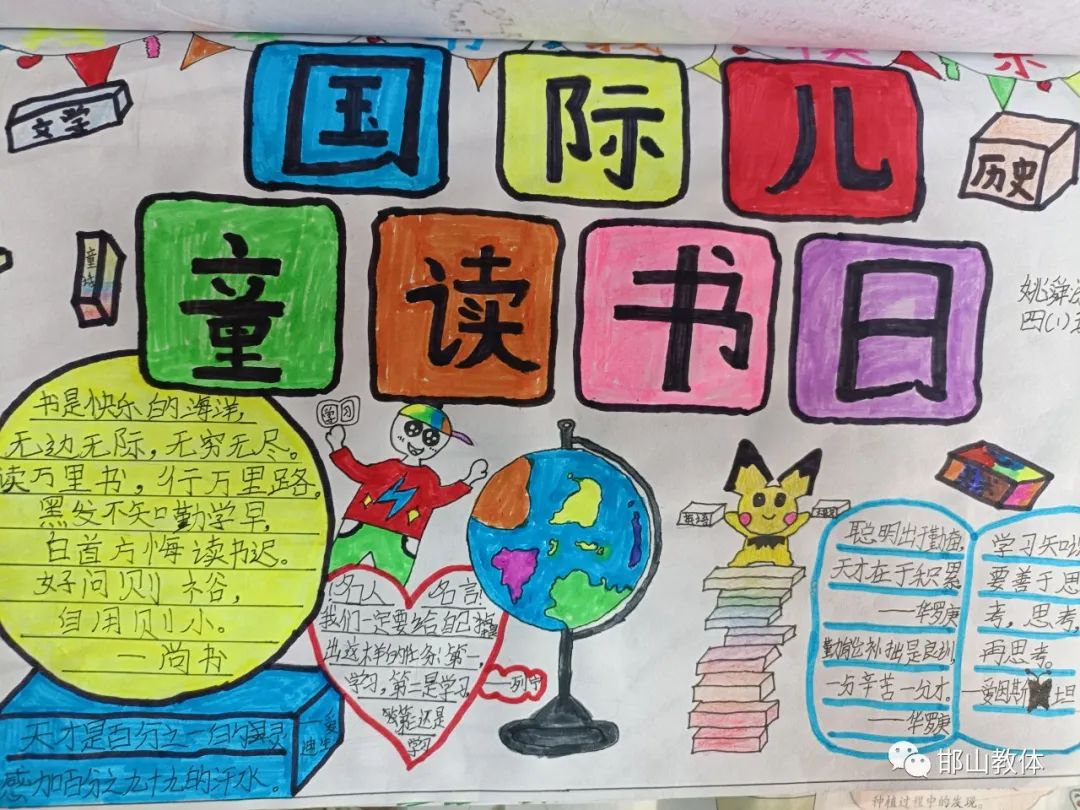 文学
国际儿
历史
童读书日
姚舜
四(1)
书是快乐的海洋,
无边无际,无穷无尽。
读万里书,行万里路。
黑发不知勤学早,
白首方悔读书迟。
好问则裕,
自用则小。
—尚书
天才是百分之一的灵
感加百分之九十九的汗水。
学习
名人 名言!
我们一定要给自己提
出这样的任务:第一,
学习,第二是学习,
第三还是
学习
——列宁
聪明出于勤奋,
天才在于积累
——华罗庚
勤能补拙是良训,
一分辛苦一分才。
——华罗庚
学习知识
要善于思
考,思考,
再思考。
—爱因斯坦
邯山教体
种植过程中的发现。